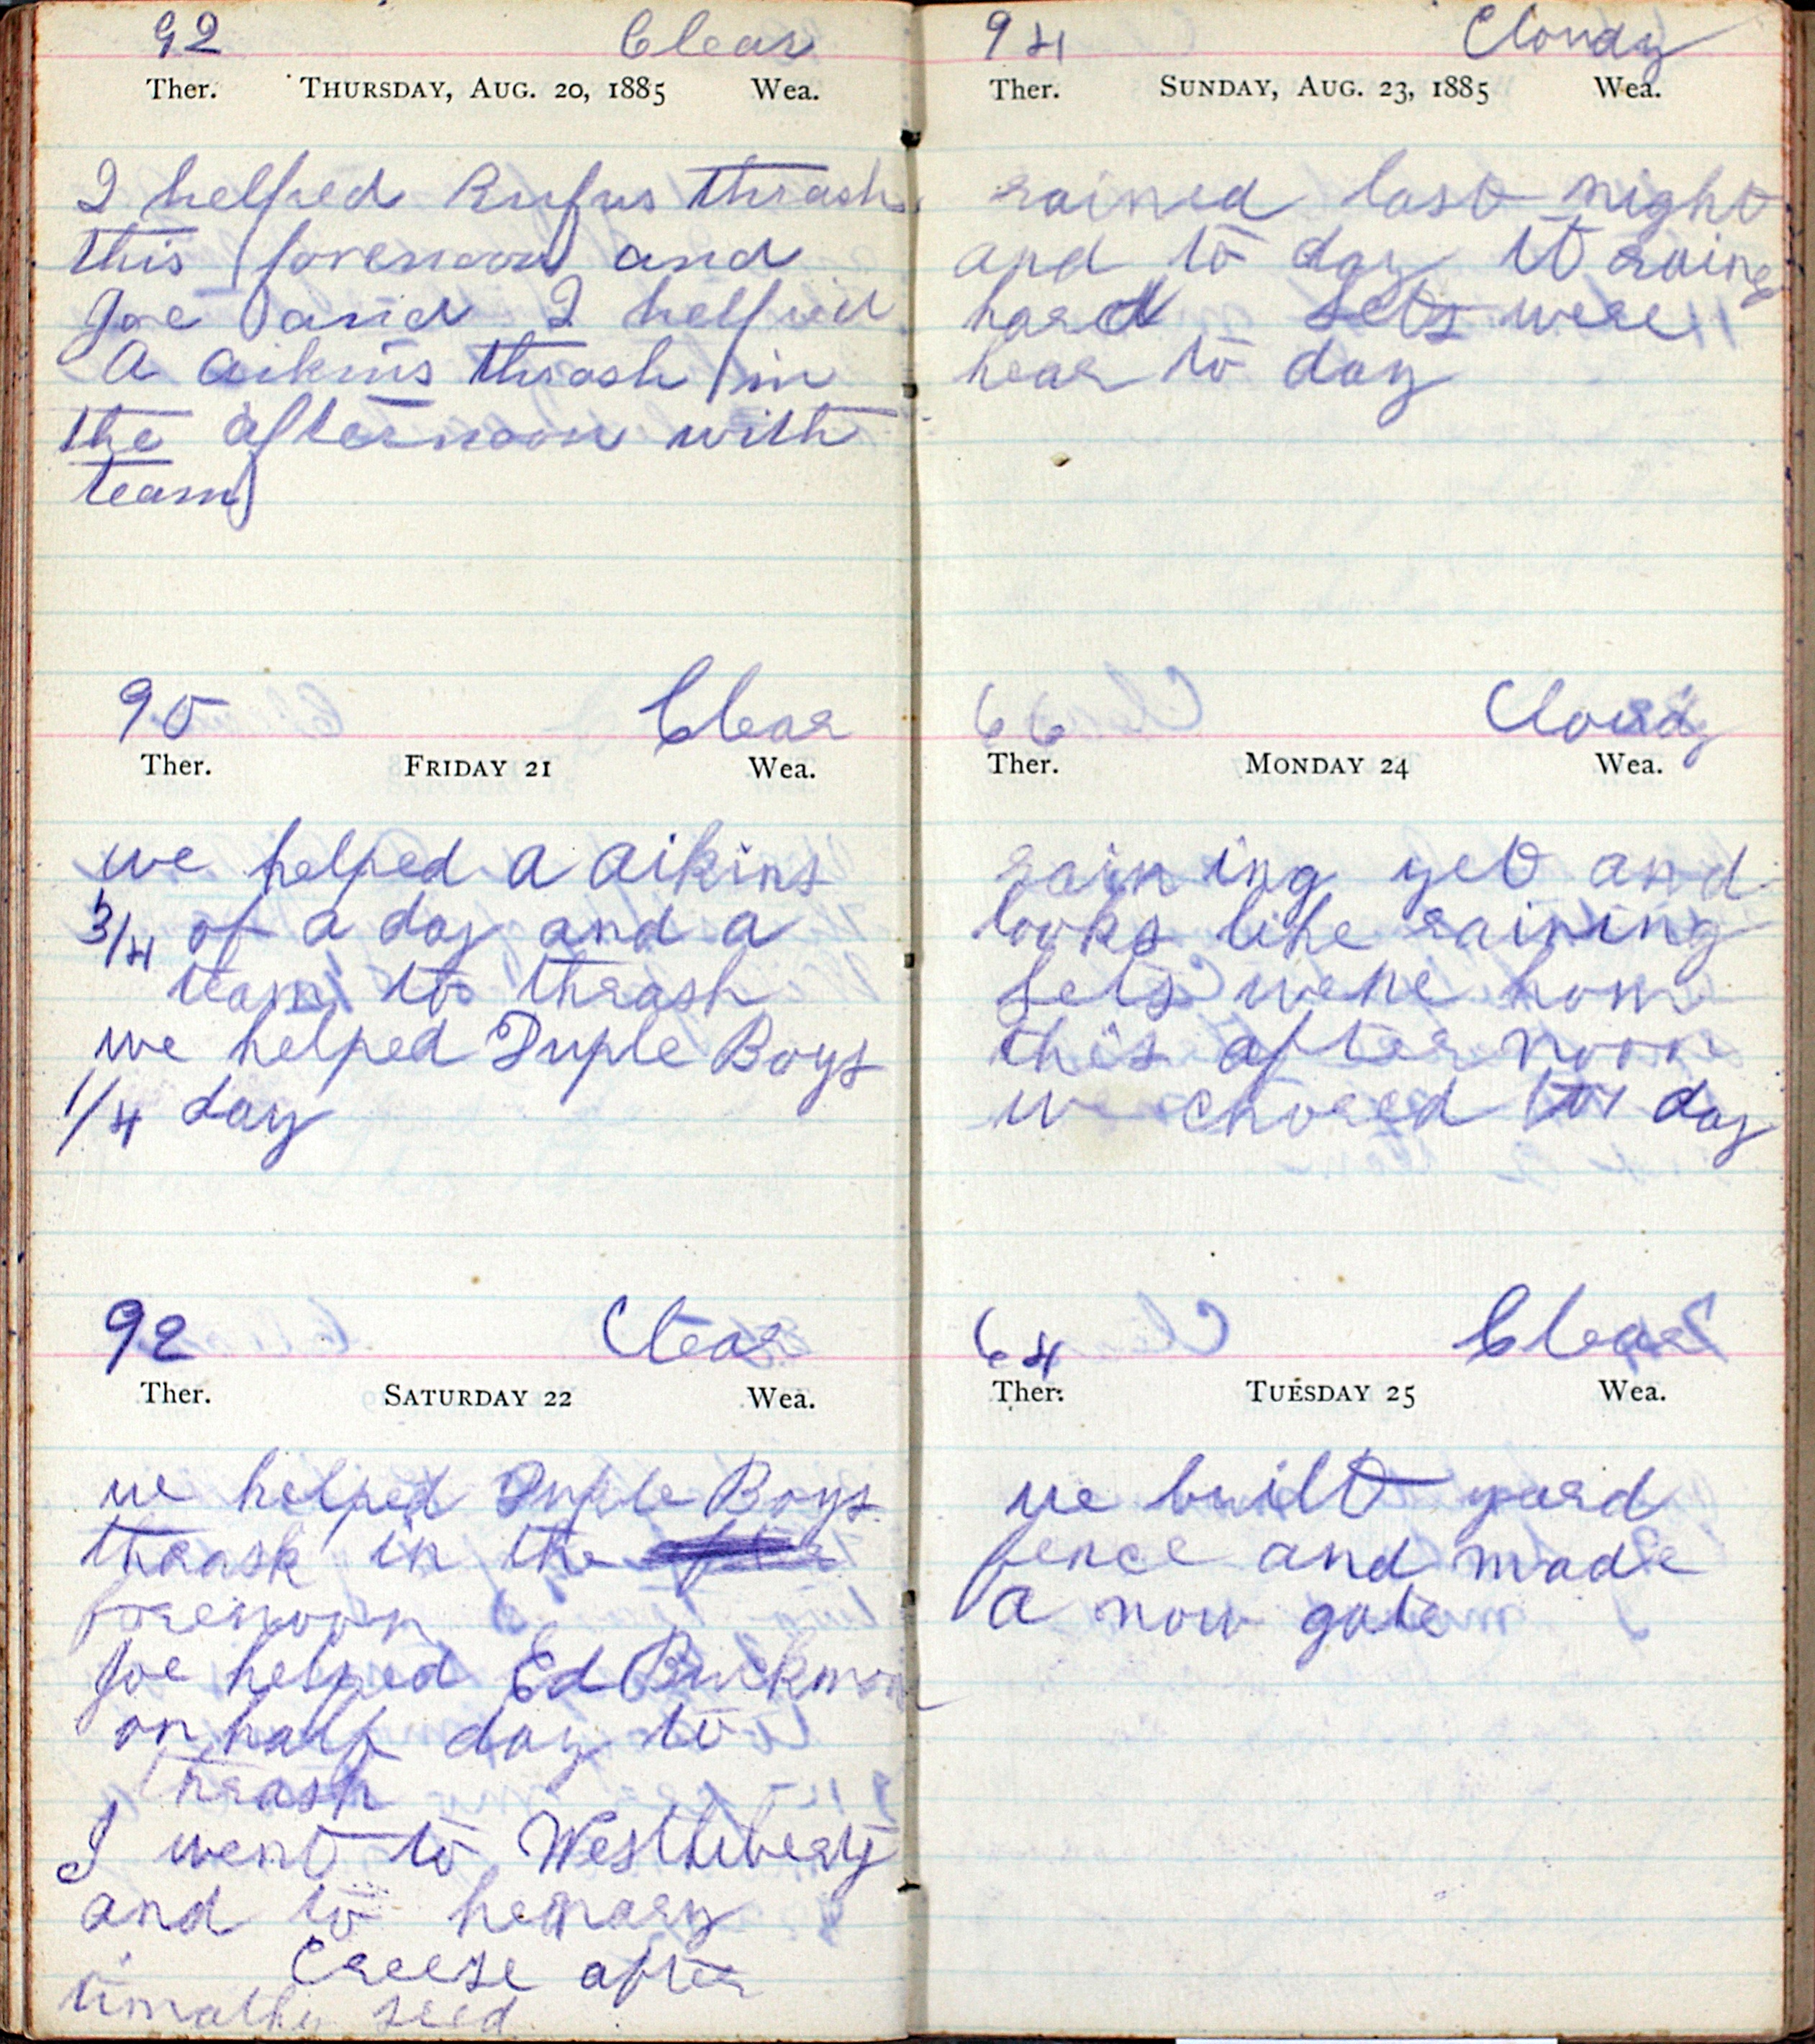 92 Clear
Ther. THURSDAY, AUG. 20, 1885 Wea.
I helped Rufus thrash
this forenoon and
Joe and I helped
A Aikins thrash in
the afternoon with
team
90 Clear
Ther. FRIDAY 21 Wea.
we helped A Aikins
3/4 of a day and a
team to thrash
we helped Duple Boys
1/4 day
92 Clear
Ther. SATURDAY 22 Wea.
we helped Duple Boys
thrash in the
forenoon
Joe helped Ed Buckman
on half day to
thrash
I went to Westliberty
and to henary
Creese after
timathy seed
94 Cloudy
Ther. SUNDAY, AUG. 23, 1885 Wea.
rained last night
and to day it raing
hard Sets were
hear to day
66 Cloudy
Ther. MONDAY 24 Wea.
raining yet and
looks like raining
Sets went hom
this after noon
we chored to day
64 Clear
Ther. TUESDAY 25 Wea.
we built yard
fence and made
a now gate